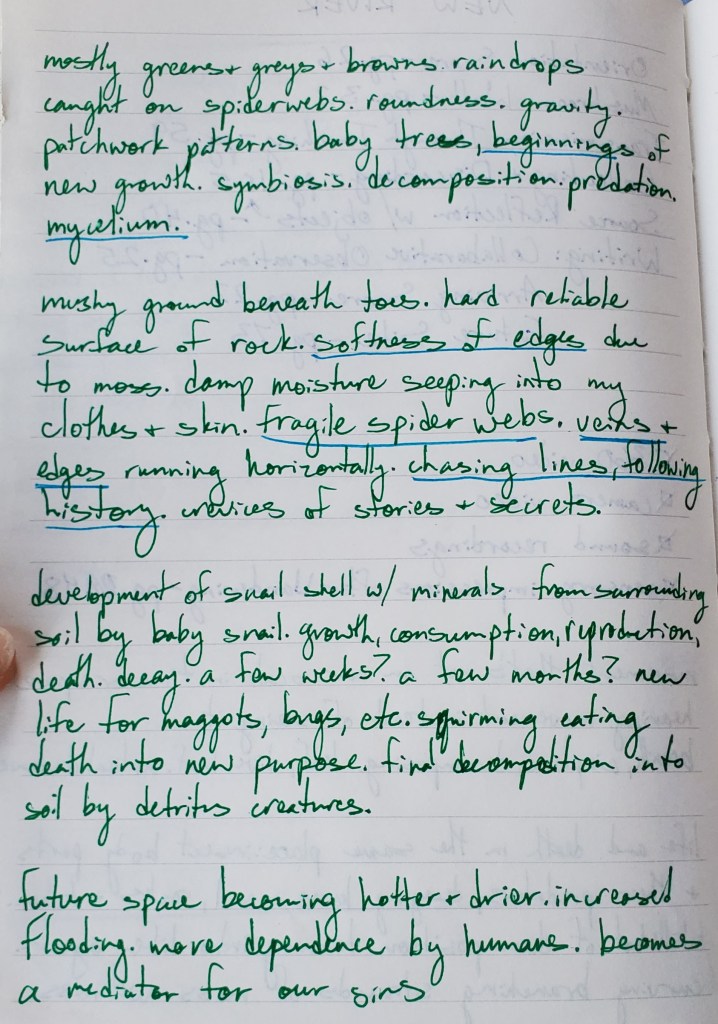 mostly greens + greys + browns. raindrops
caught on spiderwebs. roundness. gravity.
patchwork patterns. baby trees, beginnings of
new growth. symbiosis. decomposition. predation.
mycelium.
mushy ground beneath toes. hard reliable
surface of rock. softness of edges due
to moss. damp moisture seeping into my
clothes + skin. fragile spider webs. veins +
edges running horizontally. chasing lines, following
history. crevices of stories + secrets.
development of snail shell w/ minerals from surrounding
soil by baby snail. growth, consumption, reproduction,
death. decay. a few weeks? a few months? new
life for maggots, bugs, etc. squirming eating
death into new purpose. final decomposition into
soil by detritus creatures.
future space becoming hotter + drier. increased
flooding. more dependence by humans. becomes
a mediator for our sins